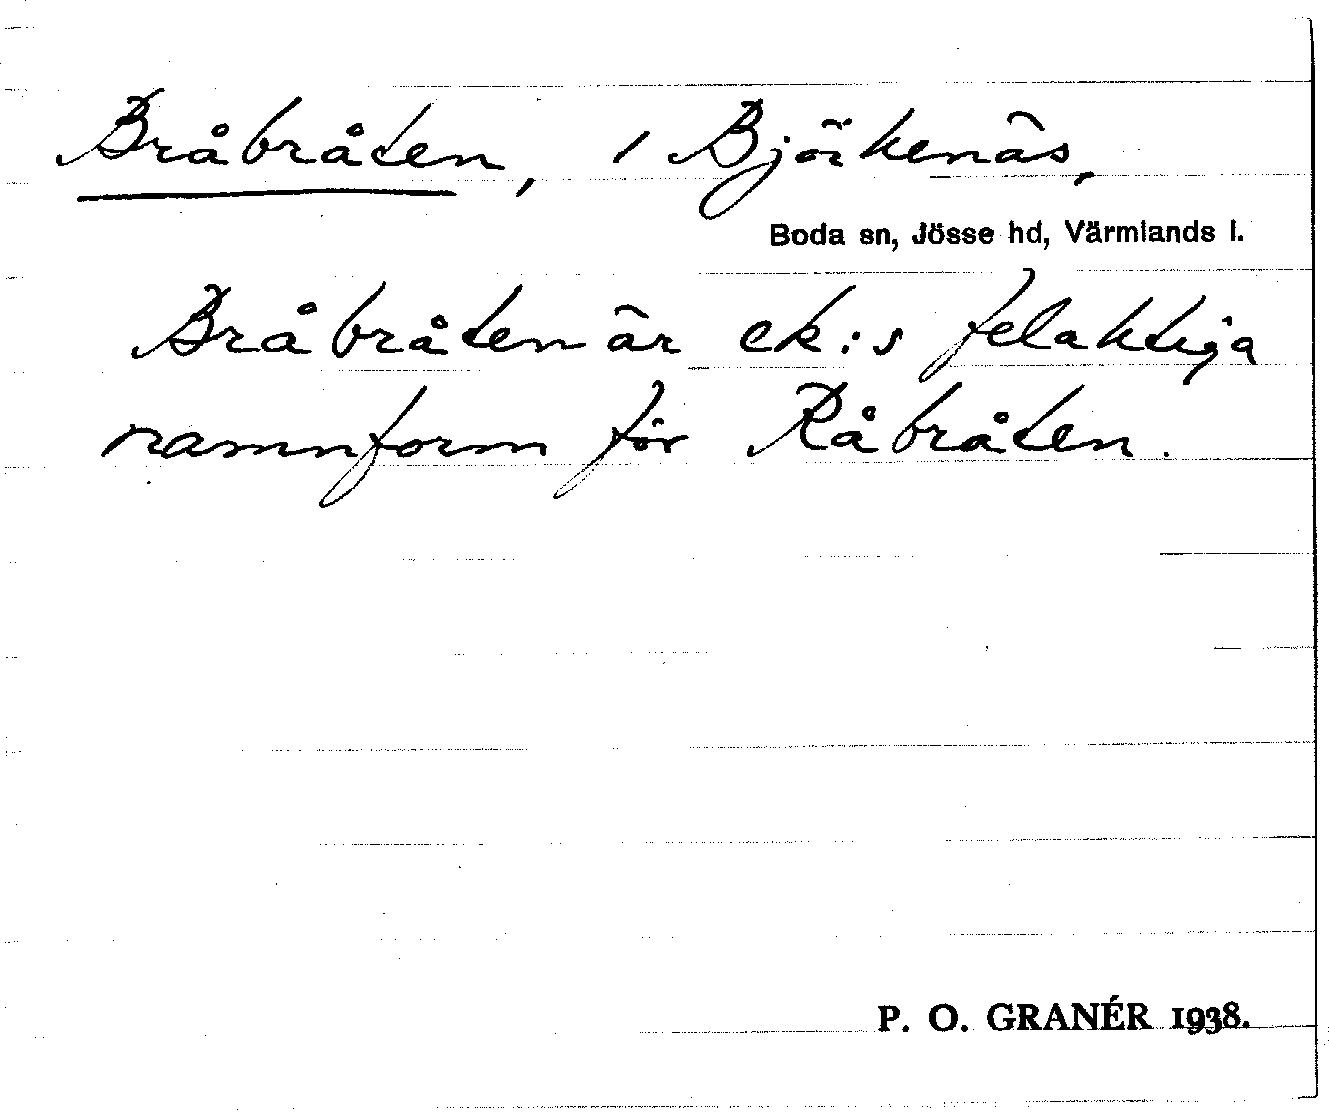 Bråbråten, i Björkenäs,
Boda sn, Jösse hd, Värmlands l.
Bråbråten är ek:s felaktiga
namnform för Råbråten.
P. O. GRANÉR 1938.